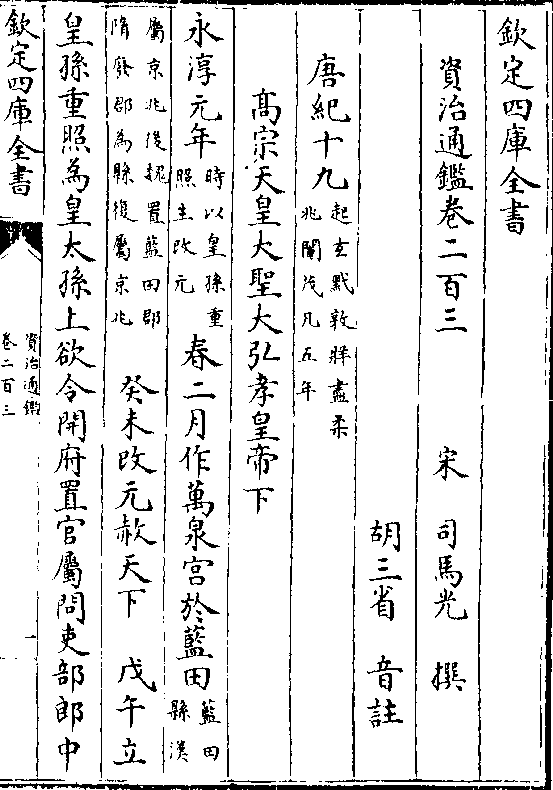 欽定四庫全書
資治通鑑卷二百三
宋 司馬光 撰
胡三省 音註
唐紀十九起玄黓敦牂盡柔
兆閹茂凡五年
高宗天皇大聖大弘孝皇帝下
永淳元年時以皇孫重
照生改元
春二月作萬泉宮於藍田藍田
縣漢
屬京兆後魏置藍田郡
隋廢郡為縣復屬京兆
癸未改元赦天下 戊午立
皇孫重照為皇太孫上欲令開府置官屬問吏部郎中
欽定四庫全書
資治通鑑
卷二百三
一